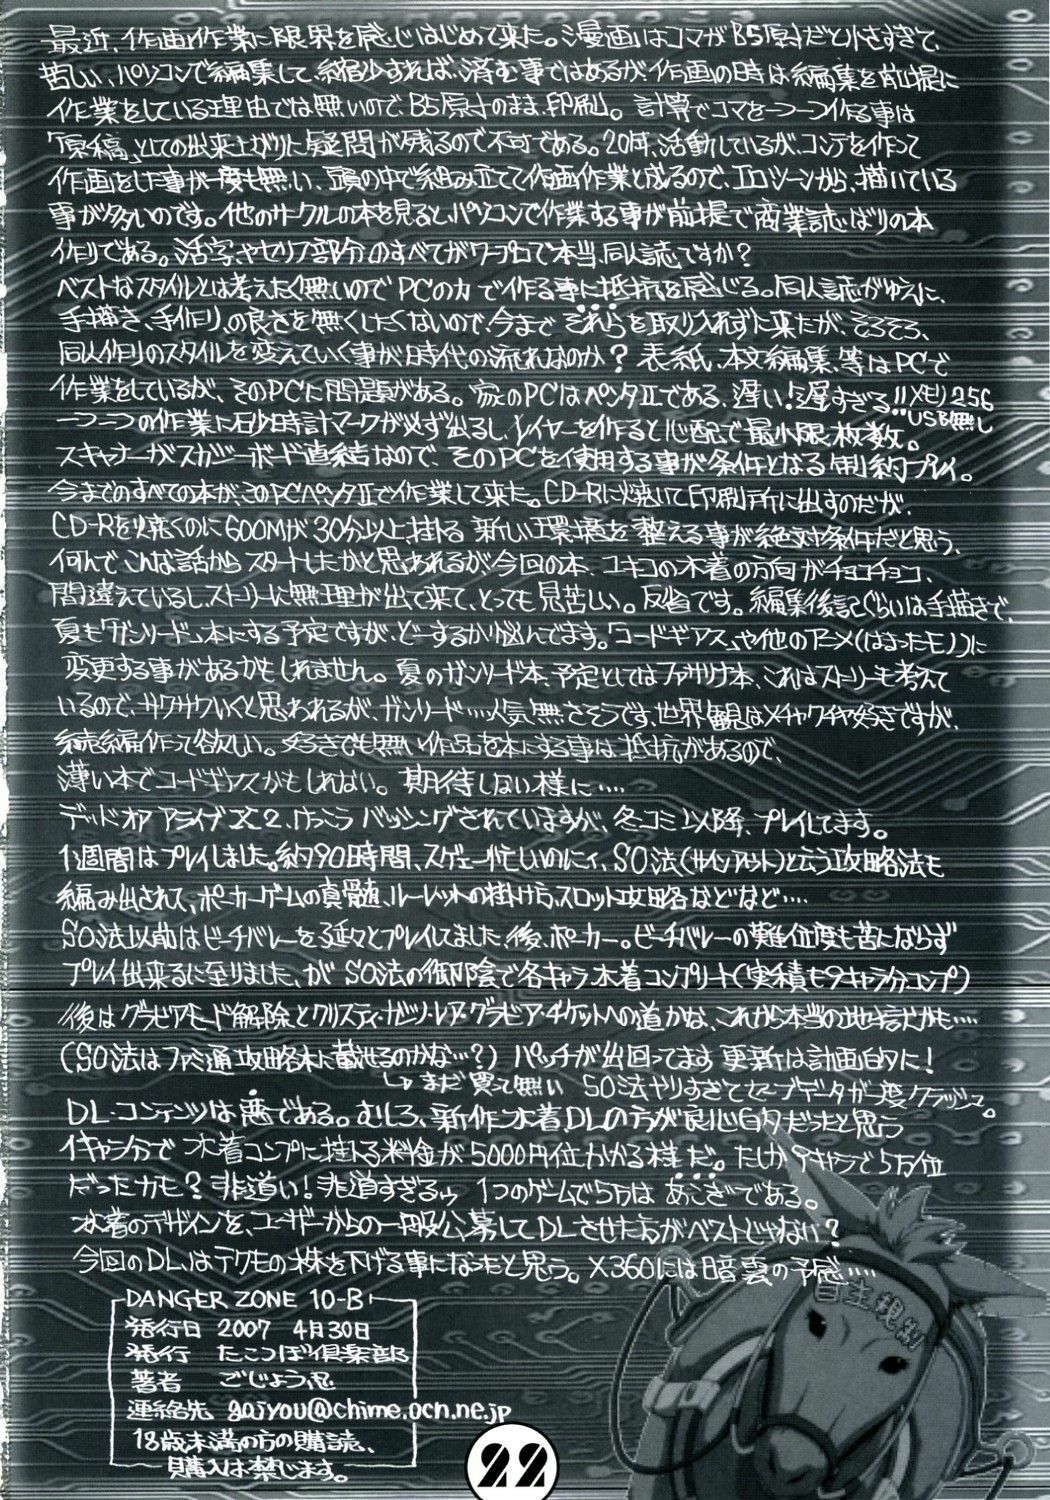 最近、作画作業に限界を感じはじめて来た。漫画はコマがB5原寸だと小さすぎて、
苦しい、パソコンで編集して、縮少すれば、済む事ではあるが、作画の時は編集を前提に
作業をしている理由では無いので、B5原寸のまま、印刷。計算でコマを一つ一つ作る事は
「原稿」としての出来上がりに疑問が残るので不可である。20年、活動しているが、コンテを作って
作画をした事が一度も無い、頭の中で組み立てて作画作業と成るので、エロシーンから、描いている
事が多いのです。他のサークルの本を見ると、パソコンで作業する事が前提で商業誌ばりの本
作りである。活字やセリフ部分のすべてがワープロで本当、同人誌ですか?
ベストなスタイルとは考えたく無いのでPCの力で作る事に抵抗を感じる。同人誌がゆえに、
手描き、手作り、の良さを無くしたくないので、今までそれらを取り入れずに来たが、そろそろ、
同人作りのスタイルを変えていく事が時代の流れなのか?表紙、本文編集、等はPCで
作業をしているが、そのPCに問題がある。家のPCはペンタIIである、遅い!遅すぎる!!メモリ256
USB無し
一つ一つの作業に砂時計マークが必ず出るし、レイヤーを作ると心配で最小限枚数。
スキャナーがスカジーボード直結なので、そのPCを使用する事が条件となる制約プレイ。
今までのすべての本が、このPCペンタIIで作業して来た。CD-Rに焼いて印刷所に出すのだが、
CD-Rを焼くのに600Mが30分以上掛る 新しい環境を整える事が絶対条件だと思う、
何んで、こんな話からスタートしたかと思われるが今回の本、ユキコの水着の方向がチョコチョコ、
間違えているし、ストーリーに無理が出て来て、とっても見苦しい。反省です。編集後記ぐらいは手描きで、
夏も「ガンソード」本にする予定ですが、どーするか悩んでます。「コードギアス」や他のアニメ(はまったモノ)に
変更する事があるかもしれません。夏のガンソード本、予定としてはファサリナ本、これはストーリーも考えて
いるので、サクサクいくと思われるが、ガンソード‥‥人気無さそうです、世界観はメチャクチャ好きですが、
続編作って欲しい。好きでも無い作品を本にする事は抵抗があるので、
薄い本でコードギアスかもしれない。期待しない様に‥‥
デッド オア アライブX2、けっこうバッシングされていますが、冬コミ以降、プレイしてます。
1週間はプレイしました。約90時間、スゲェー忙しいのにィ、SO法(サインアウト)と云う攻略法も
編み出されて、ポーカーゲームの真髄、ルーレットの掛け方、スロット攻略などなど‥‥
SO法以前はビーチバレーを延々とプレイしてました 後、ポーカー。ビーチバレーの難易度も苦にならず
プレイ出来るに至りました、がSO法の御陰で各キャラ水着コンプリート(実積も9キャラ分コンプ)
後はグラビアモード解除とクリスティ・ガッツ・レア・グラビア・チケットへの道かな、これから本当の地獄だかも‥‥
(SO法はファミ通攻略本に載せるのかな‥?) パッチが出回ってます 更新は計画的に!
まだ買って無い SO法やりすぎてセーブデータが1度クラッシュ。
DL・コンテンツは悪である。むしろ、新作水着DLの方が良心的だったと思う
1キャラ分で水着コンプに掛る料金が5000円位かかる様だ。たしか9キャラで5万位
だったカモ?非道い!非道すぎる 1つのゲームで5万はあこぎである。
水着のデザインを、ユーザーからの一般公募してDLさせた方がベストじゃない?
今回のDLはテクモの株を下げる事になったと思う。X360には暗雲の予感‥‥
自主規制
DANGER ZONE 10-B
発行日 2007 4月30日
発行 たこつぼ倶楽部
著者 ごじょう忍
連絡先 gojyou@chime.ocn.ne.jp
18歳未満の方の購読、
購入は禁じます。
22